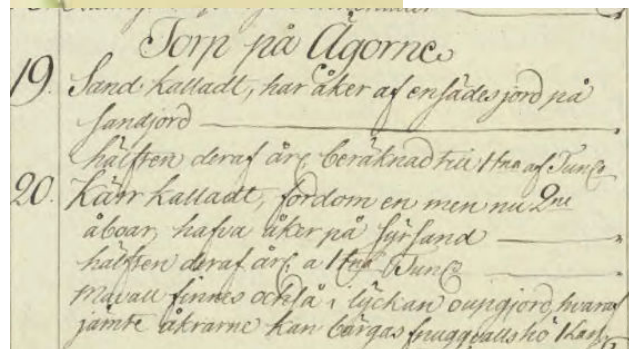 Torp på Ägorne
19. Sand kalladt, har åker af ensädes jord på
sandjord
hälften deraf årl. beräknad till 1 tna af Tun
20. Kärr kalladt, fordom en men nu 2ne
åboar, hafva åker på syrsand
hälften deraf årl. a 1 tna Tun
finnes också i lyckan oupgjord, hvaraf
jämte åkrarne kan bärgas snuggvalls hö 1 Lass